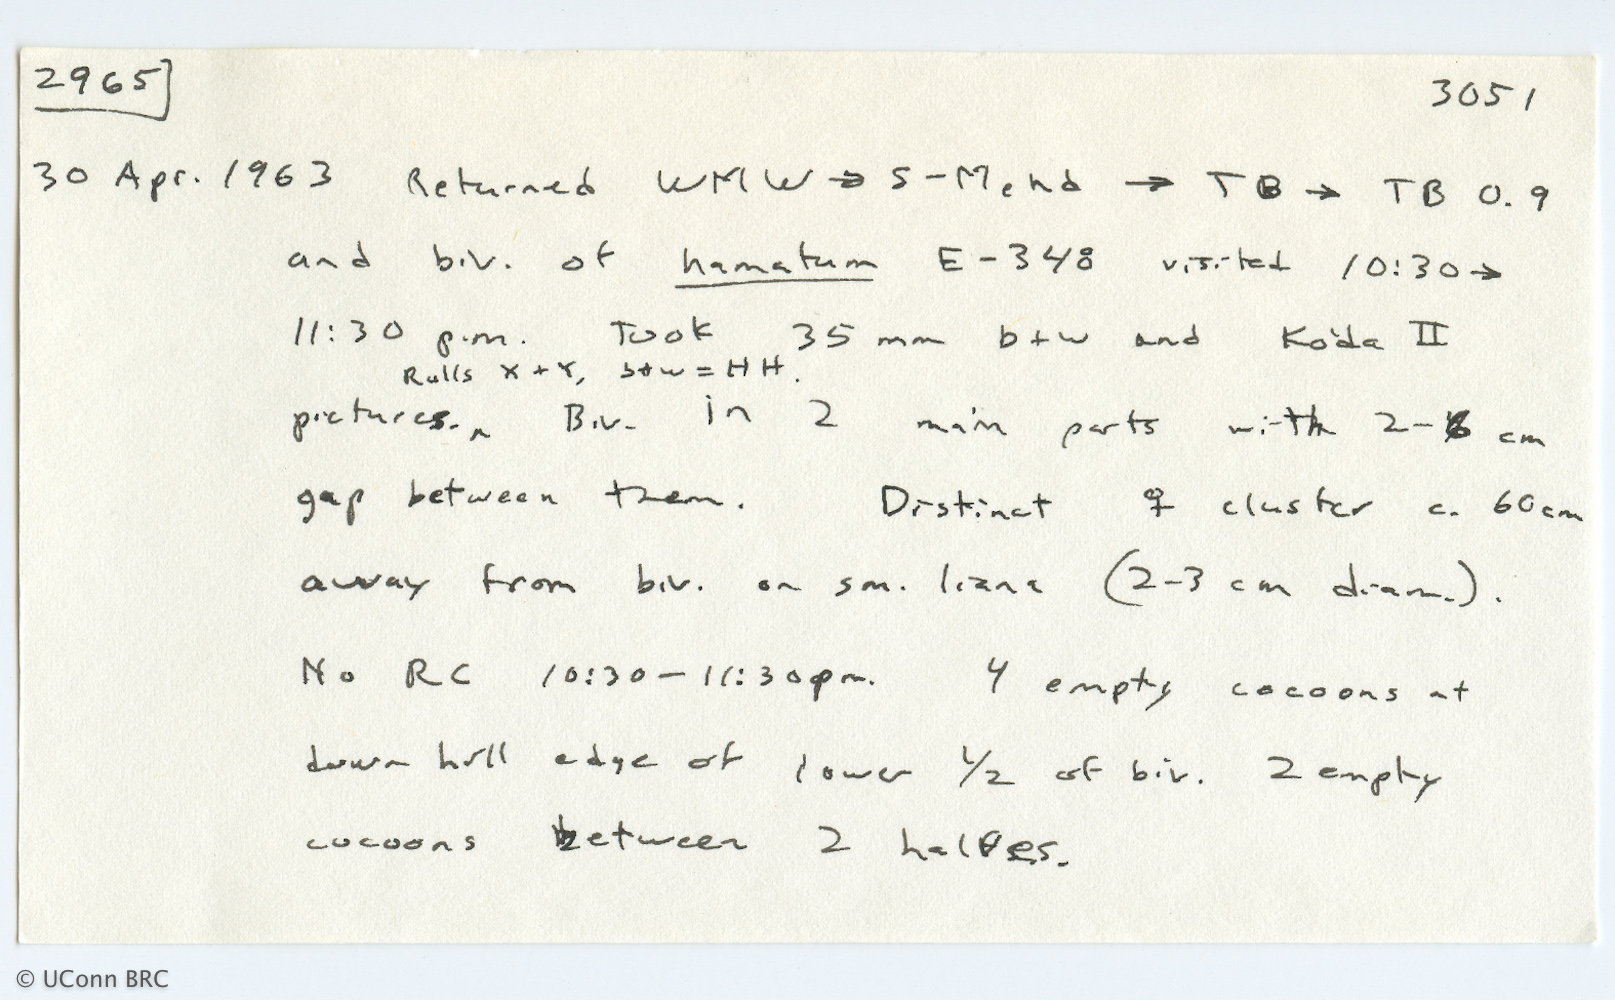 2965] 3051
30 Apr. 1963 Returned WMW → S-Mend → TB → TB 0.9
and biv. of hamatum E-348 visited 10:30 →
11:30 p.m. Took 35 mm b+w and Koda II
Rolls X + Y, b+w = HH.
pictures.‸ Biv. in 2 main parts with 2-6 cm
gap between them. Distinct ♀ cluster c. 60 cm
away from biv. on sm. liana (2-3 cm diam.).
No RC 10:30-11:30 pm. 4 empty cocoons at
down hill edge of lower 1/2 of biv. 2 empty
cocoons between 2 halves.
© UConn BRC